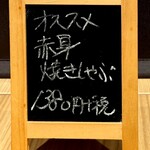 オススメ
赤身
焼きしゃぶ
1380円+税